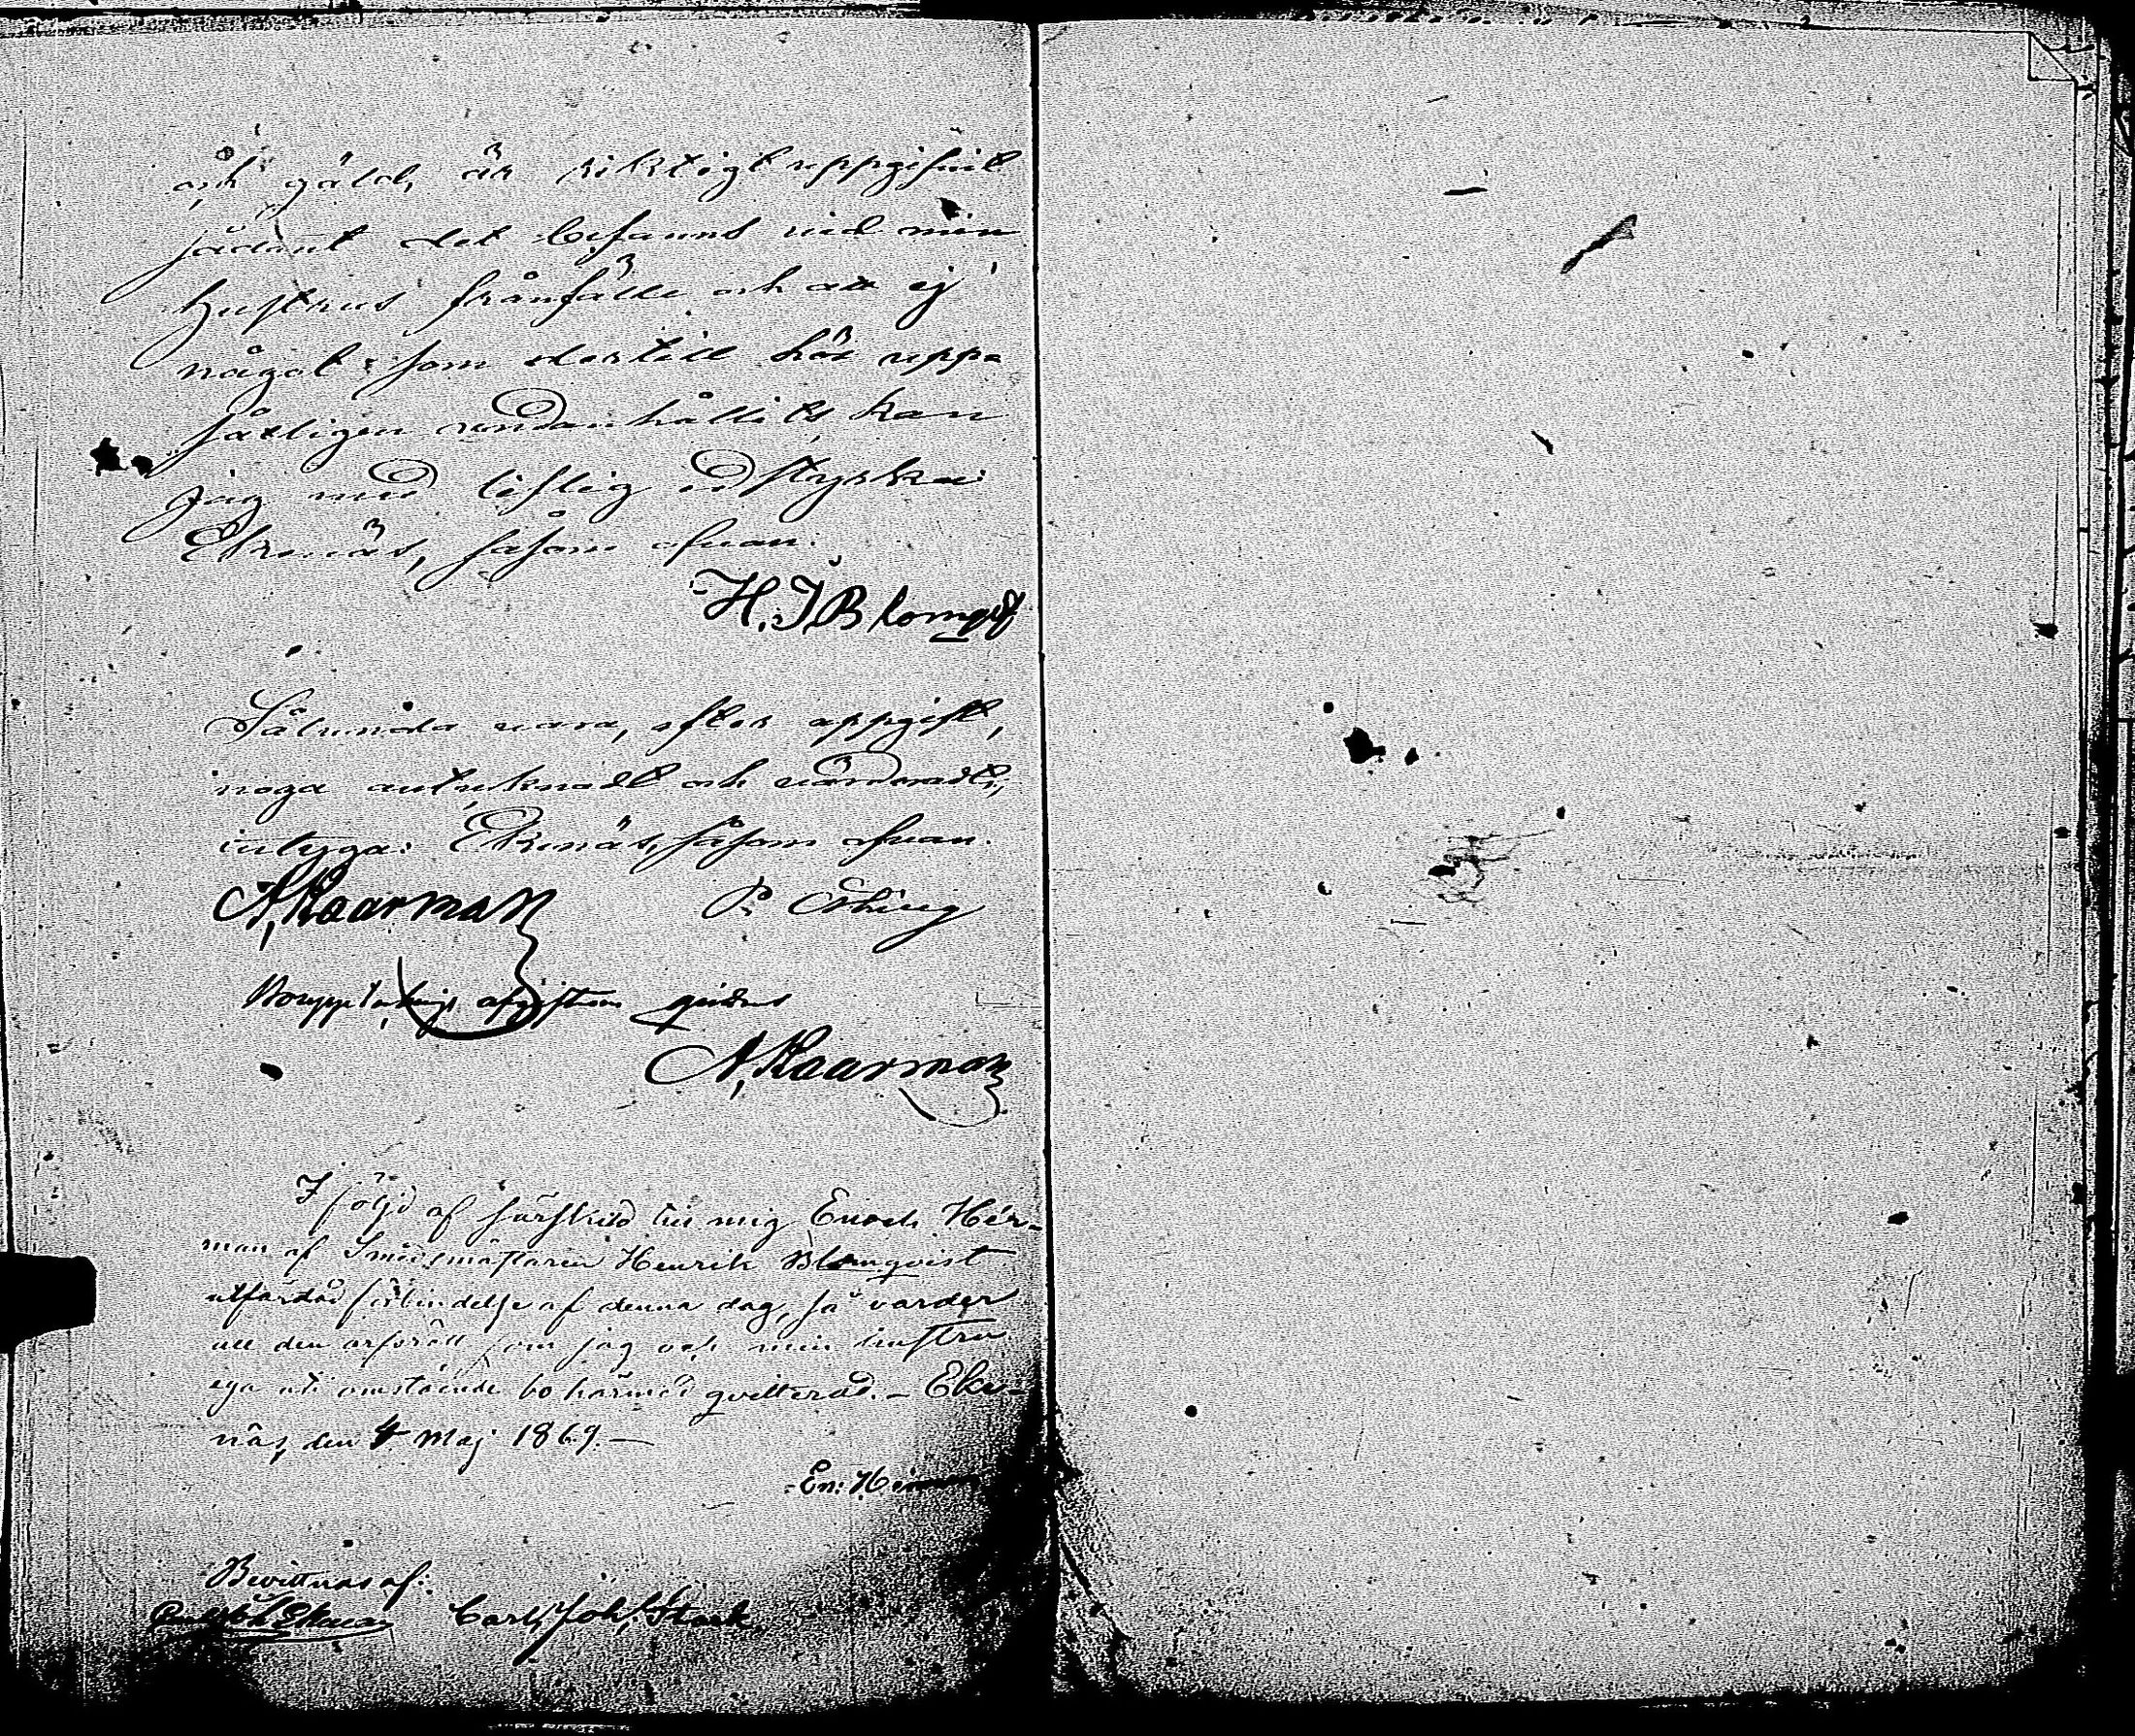 och gäld, är riktigt uppgifvit
sådant det befanns vid min
hustrus frånfälle och att ej
något som dertill hör upp-
såtligen undanhållits kan
jag med liflig ed styrka
Ekenäs, såsom ofvan.
H. J Blomqvist
Sålunda vara, efter uppgift,
noga antecknadt och värderadt,
intyga: Ekenäs, såsom ofvan.
A, Kaarman P.
afgiften
A, Kaarman
I följd af särskild till mig Enoch Her-
man af Smedsmästaren Henrik Blomqvist
utfärdad förbindelse af denna dag, så varder
all den arfsrätt som jag och min hustru
ega uti omstående bo härmed qvitterad. - Eke-
näs, den 4 Maj 1869. -
En: Herman
Bevittnas af:
Carl Joh. Stark